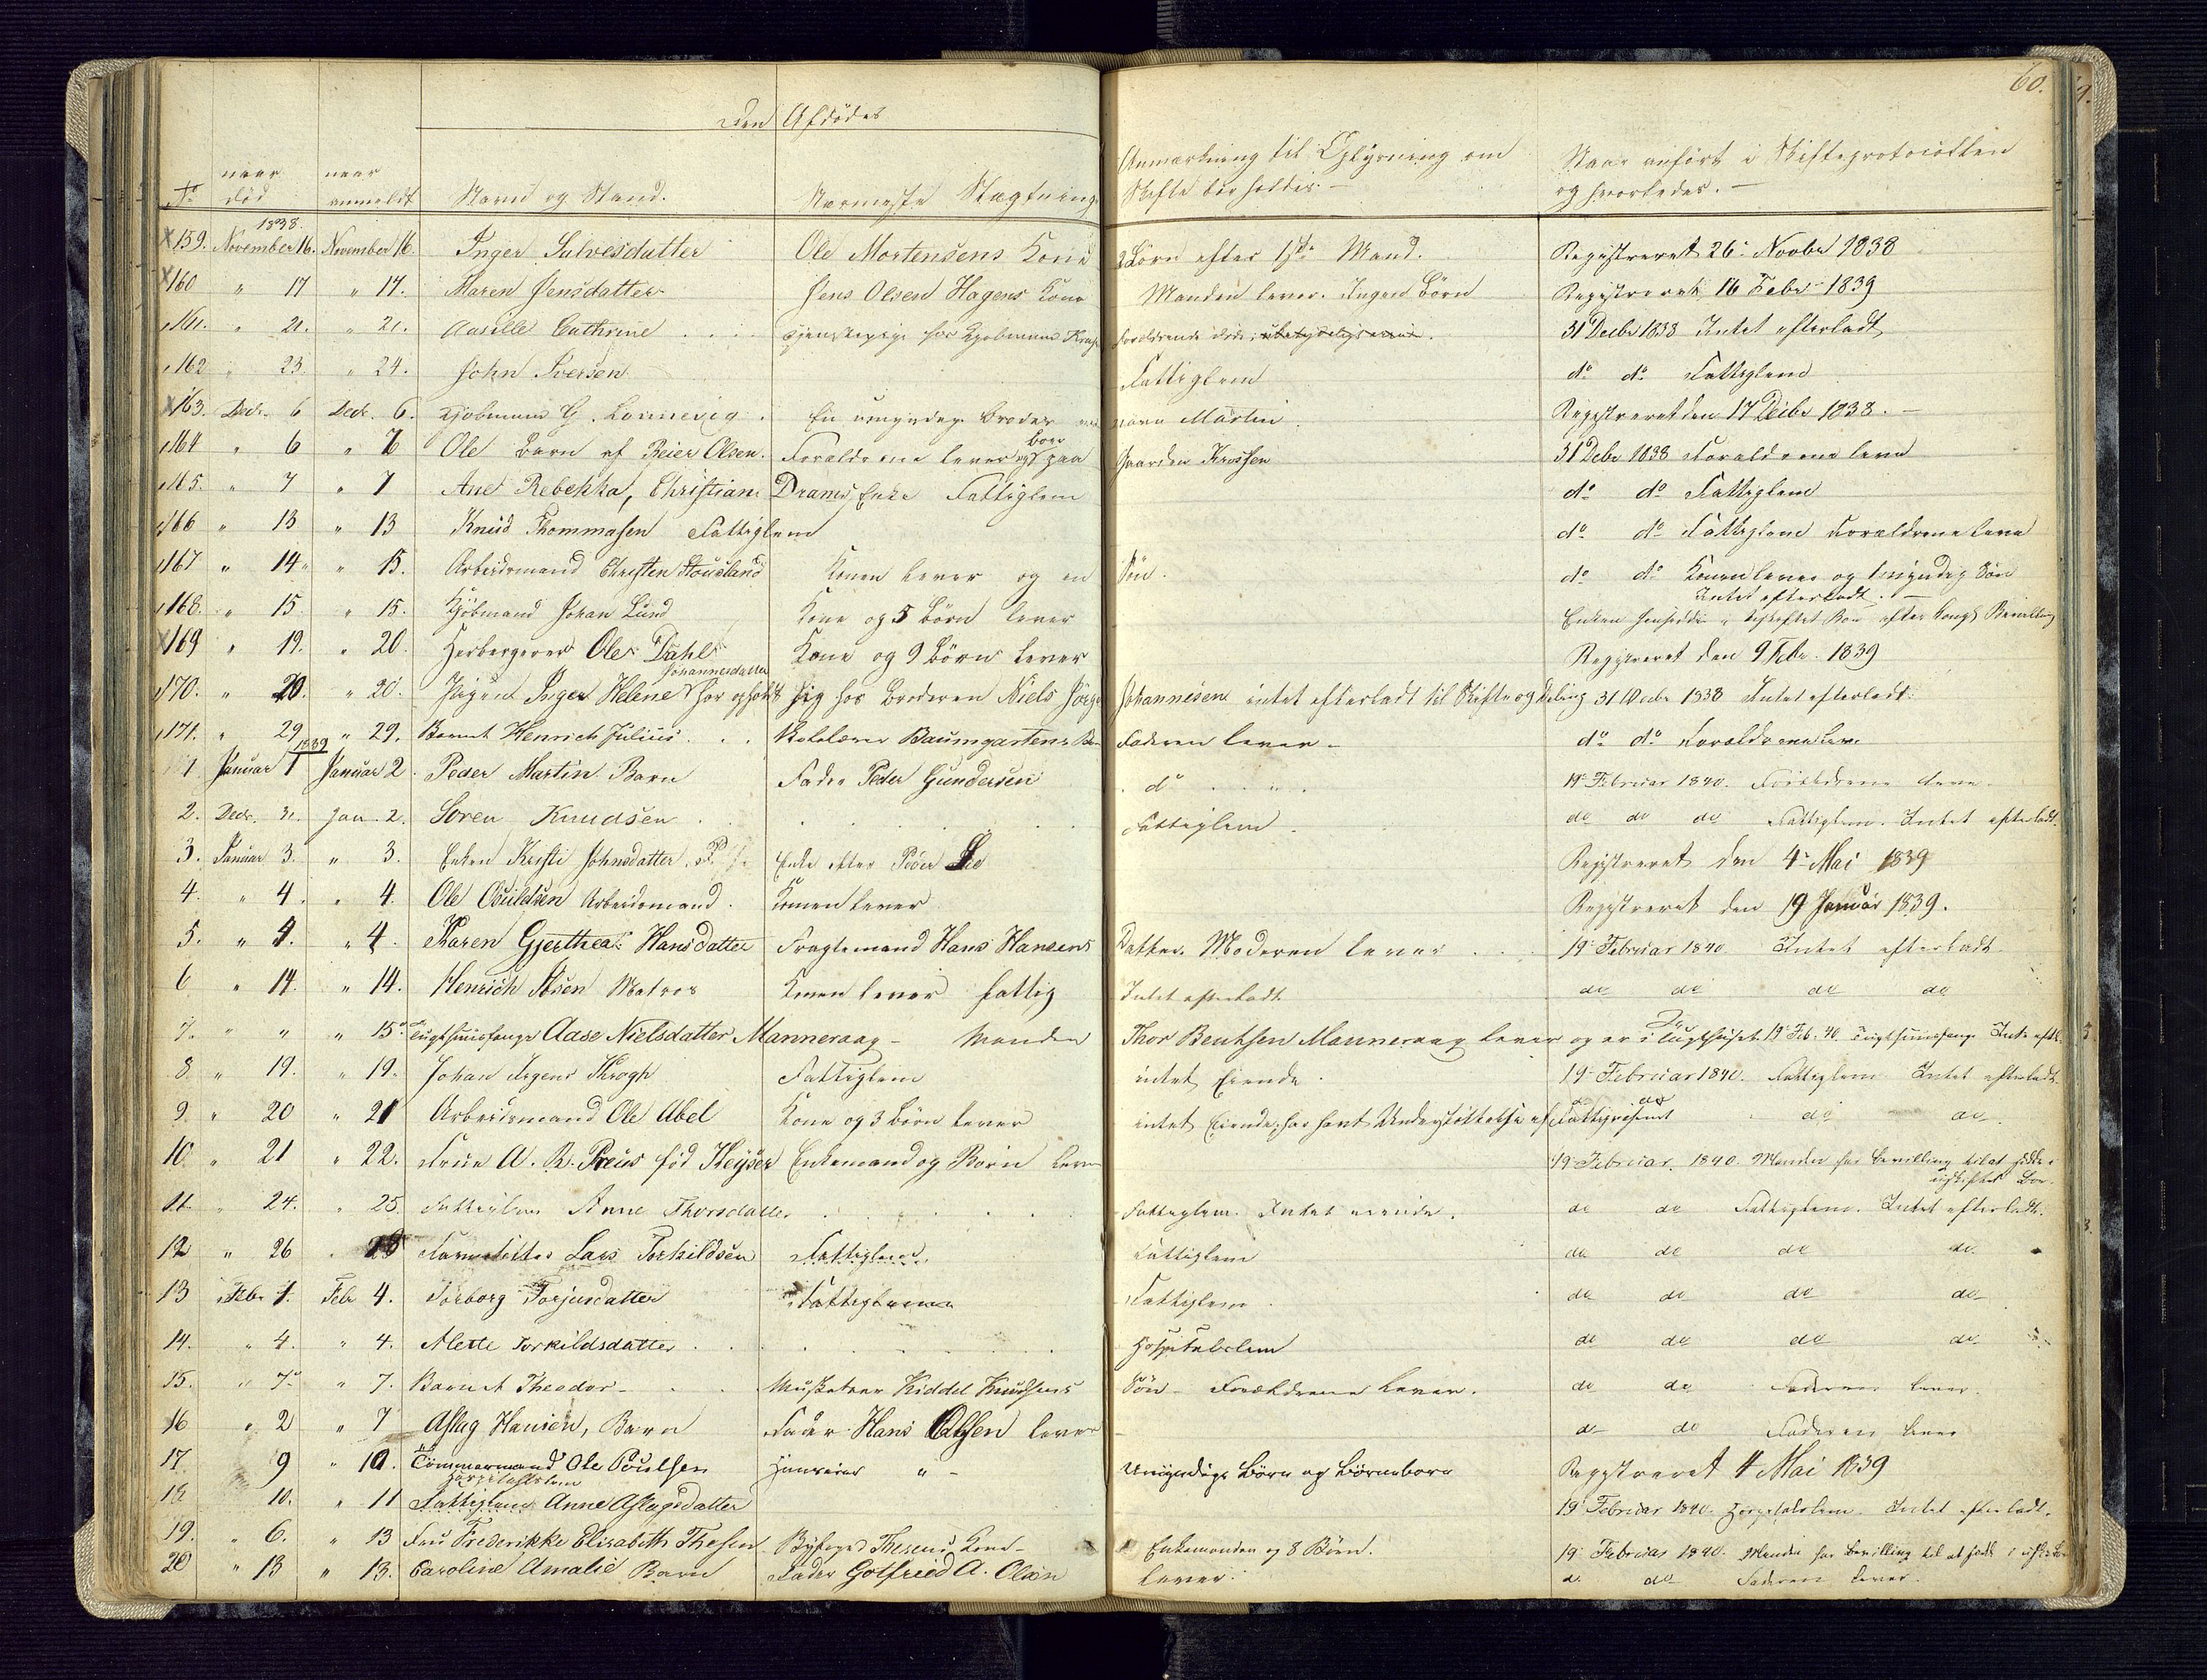 60.
Den Afdødes
No
naar død
naar anmeldt
Navn og Stand.
Nærmeste Slægtning
Anmærkning til Oplysning om Skifte bør holdes. —
Naar anført i Skifteprotocollen og hvorledes. —
1838.
159. November 16. November 16. Inger Salvesdatter Ole Mortensens Kone 2 Børn efter 1ste Mand. Registreret 26. Novbr 1838
160 " 17 " 17. Maren Jensdatter Jens Olsen Hagens Kone Manden lever. Ingen Børn Registreret 16 Febr 1839
161. " 21. " 21. Aasille Cathrine Tjenestepige hos Kjøbmand Forældrene døde, 31 Decbr 1838 Intet efterladt
162 " 23. " 24. John Iversen Fattiglem do do Fattiglem
163. Decbr. 6 Decbr. 6. Kjøbmand G. Lonnevig. En umyndig Broder ved navn Martin. Registreret den 17 Decbr 1838. —
164 " 6 " 7 Ole Barn af Reier Olsen. Forældrene lever og boer paa Gaarden Krossen 31 Decbr 1838 Forældrene leve
165. " 7 " 7 Ane Rebekka, Christian Drams Enke Fattiglem do do Fattiglem
166 " 13 " 13 Knud Thommasen Fattiglem do do Fattiglem Forældrene leve
167 " 14 " 15. Arbeidsmand Christen Stousland Konen lever og en Søn. do do Konen lever og 1 myndig Søn
Intet efterladt. —
168. " 15 " 15. Kjøbmand Johan Lund Kone og 5 Børn lever Enken hensidder i uskiftet Boe efter kongl Bevilling
169 " 19. " 20. Herbergerer Ole Dahl Kone og 9 Børn lever Registreret den 9 Febr. 1839
170. " 20. " 20. Pigen Inger Helene Johannesdatter har opholdt sig hos Broderen Niels Jørgen Johannesen intet efterladt til Skifte og Deling 31 Decbr 1838 Intet efterladt.
171. " 29 " 29. Barnet Henrich Julius. Skolelærer Baumgartens Barn Faderen lever — do do Forældrene leve
1839
1 Januar 1 Januar 2. Peder Martin Barn Fader Peder Gundersen do " 19 Februar 1840. Forældrene leve.
2. Decbr. 31. Jan. 2. Soren Knudsen Fattiglem. do do do Fattiglem. Intet efterladt.
3. Januar 3. " 3. Enken Kirsti Johnsdatter Enke efter Lie Registreret den 4 Mai 1839
4. " 4. " 4. Ole Osuldsen Arbeidsmand. Konen lever Registreret den 19 Januar 1839.
5. " 4. " 4. Karen Gjerthea Hansdatter Fragtemand Hans Hansens Datter. Moderen lever 19 Februar 1840. Intet efterladt.
6 " 14. " 14. Henrich Ibsen Matros Konen lever fattig Intet efterladt do do do do
7. " " " 15. Tugthuusfange Aase Nielsdatter Manneraag — Manden Thor Bentsen Manneraag lever og er i Tugthuset. 19 Feb. 40 Tugthuusfange Intet efterl.
8 " 19. " 19. Johan Jrgens Krogh Fattiglem intet Eiende. 19 Februar 1840. Fattiglem Intet efterladt.
9. " 20 " 21 Arbeidsmand Ole Abel Kone og 3 Børn lever intet Eiende, har havt Understøttelse af Fattigvæsenet do do do do
10. " 21 " 22. Frue A. B. Preus fød Heyser Enkemand og Børn leve 19 Februar 1840. Manden har Bevilling til at sidde i
uskiftet Boe.
11 " 24. " 25. Fattiglem Anne Thorsdatter. Fattiglem. Intet eiende. do do Fattiglem. Intet efterladt.
12 " 26 " Lars Torkildsen Fattiglem. Fattiglem do do do do
13 Febr 1. Febr 4. Torborg Torjusdatter Fattiglem Fattiglem. do do do do
14. " 4. " 4. Mette Torkildsdatter Hospitalslem do do do do
15. " 7. " 7. Barnet Theodor — Musketeer Kiddel Knudsens Søn — Forældrene lever. do do Faderen lever.
16 " 2 " 7 Aslag Hansen, Barn Fader Hans Olsen lever — do do Faderen lever
17. " 9 " 10. Tömmermand Ole Poulsen Huuseier " — Umyndige Børn og Børnebørn Registreret 4 Mai 1839
18 " 10. " 11 Fattiglem Hospitalslem Anne Aslagsdatter 19 Februar 1840. Hospitalslem. Intet efterladt.
19. " 6. " 13 Fru Frederikke Elisabeth Thesen Byfoged Thesens Kone — Enkemanden og 8 Børn. 19 Februar 1840. Manden har Bevilling til at sidde i
20 " 13 " 13. Caroline Amalie Barn Fader Gotfried A. Olsen lever. do do Faderen lever.